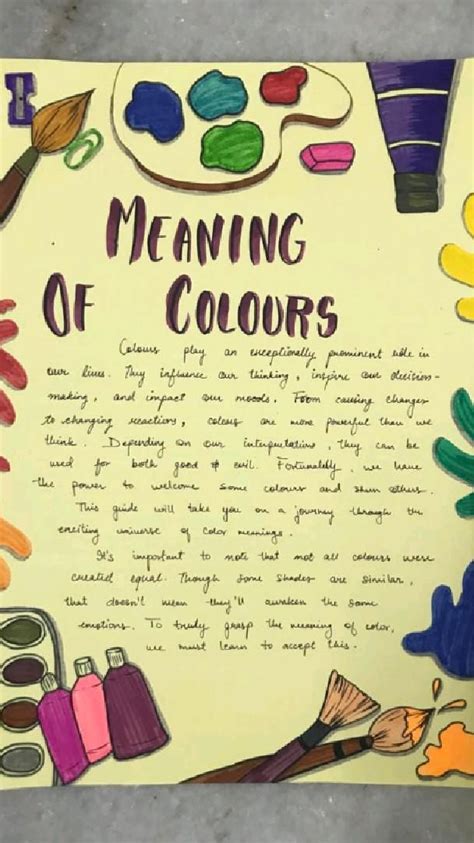 MEANING
OF COLOURS
Colours play an exceptionally prominent role in
our lives. They influence our thinking, inspire our decision-
making, and impact our moods. From causing changes
to changing reactions, colours are more powerful than we
think. Depending on our interpretations, they can be
used for both good & evil. Fortunately, we have
the power to welcome some colours and shun others.
This guide will take you on a journey through the
exciting universe of color meanings.
It's important to note that not all colours were
created equal. Though some shades are similar,
that doesn't mean they'll awaken the same
emotions. To truly grasp the meaning of color,
we must learn to accept this.